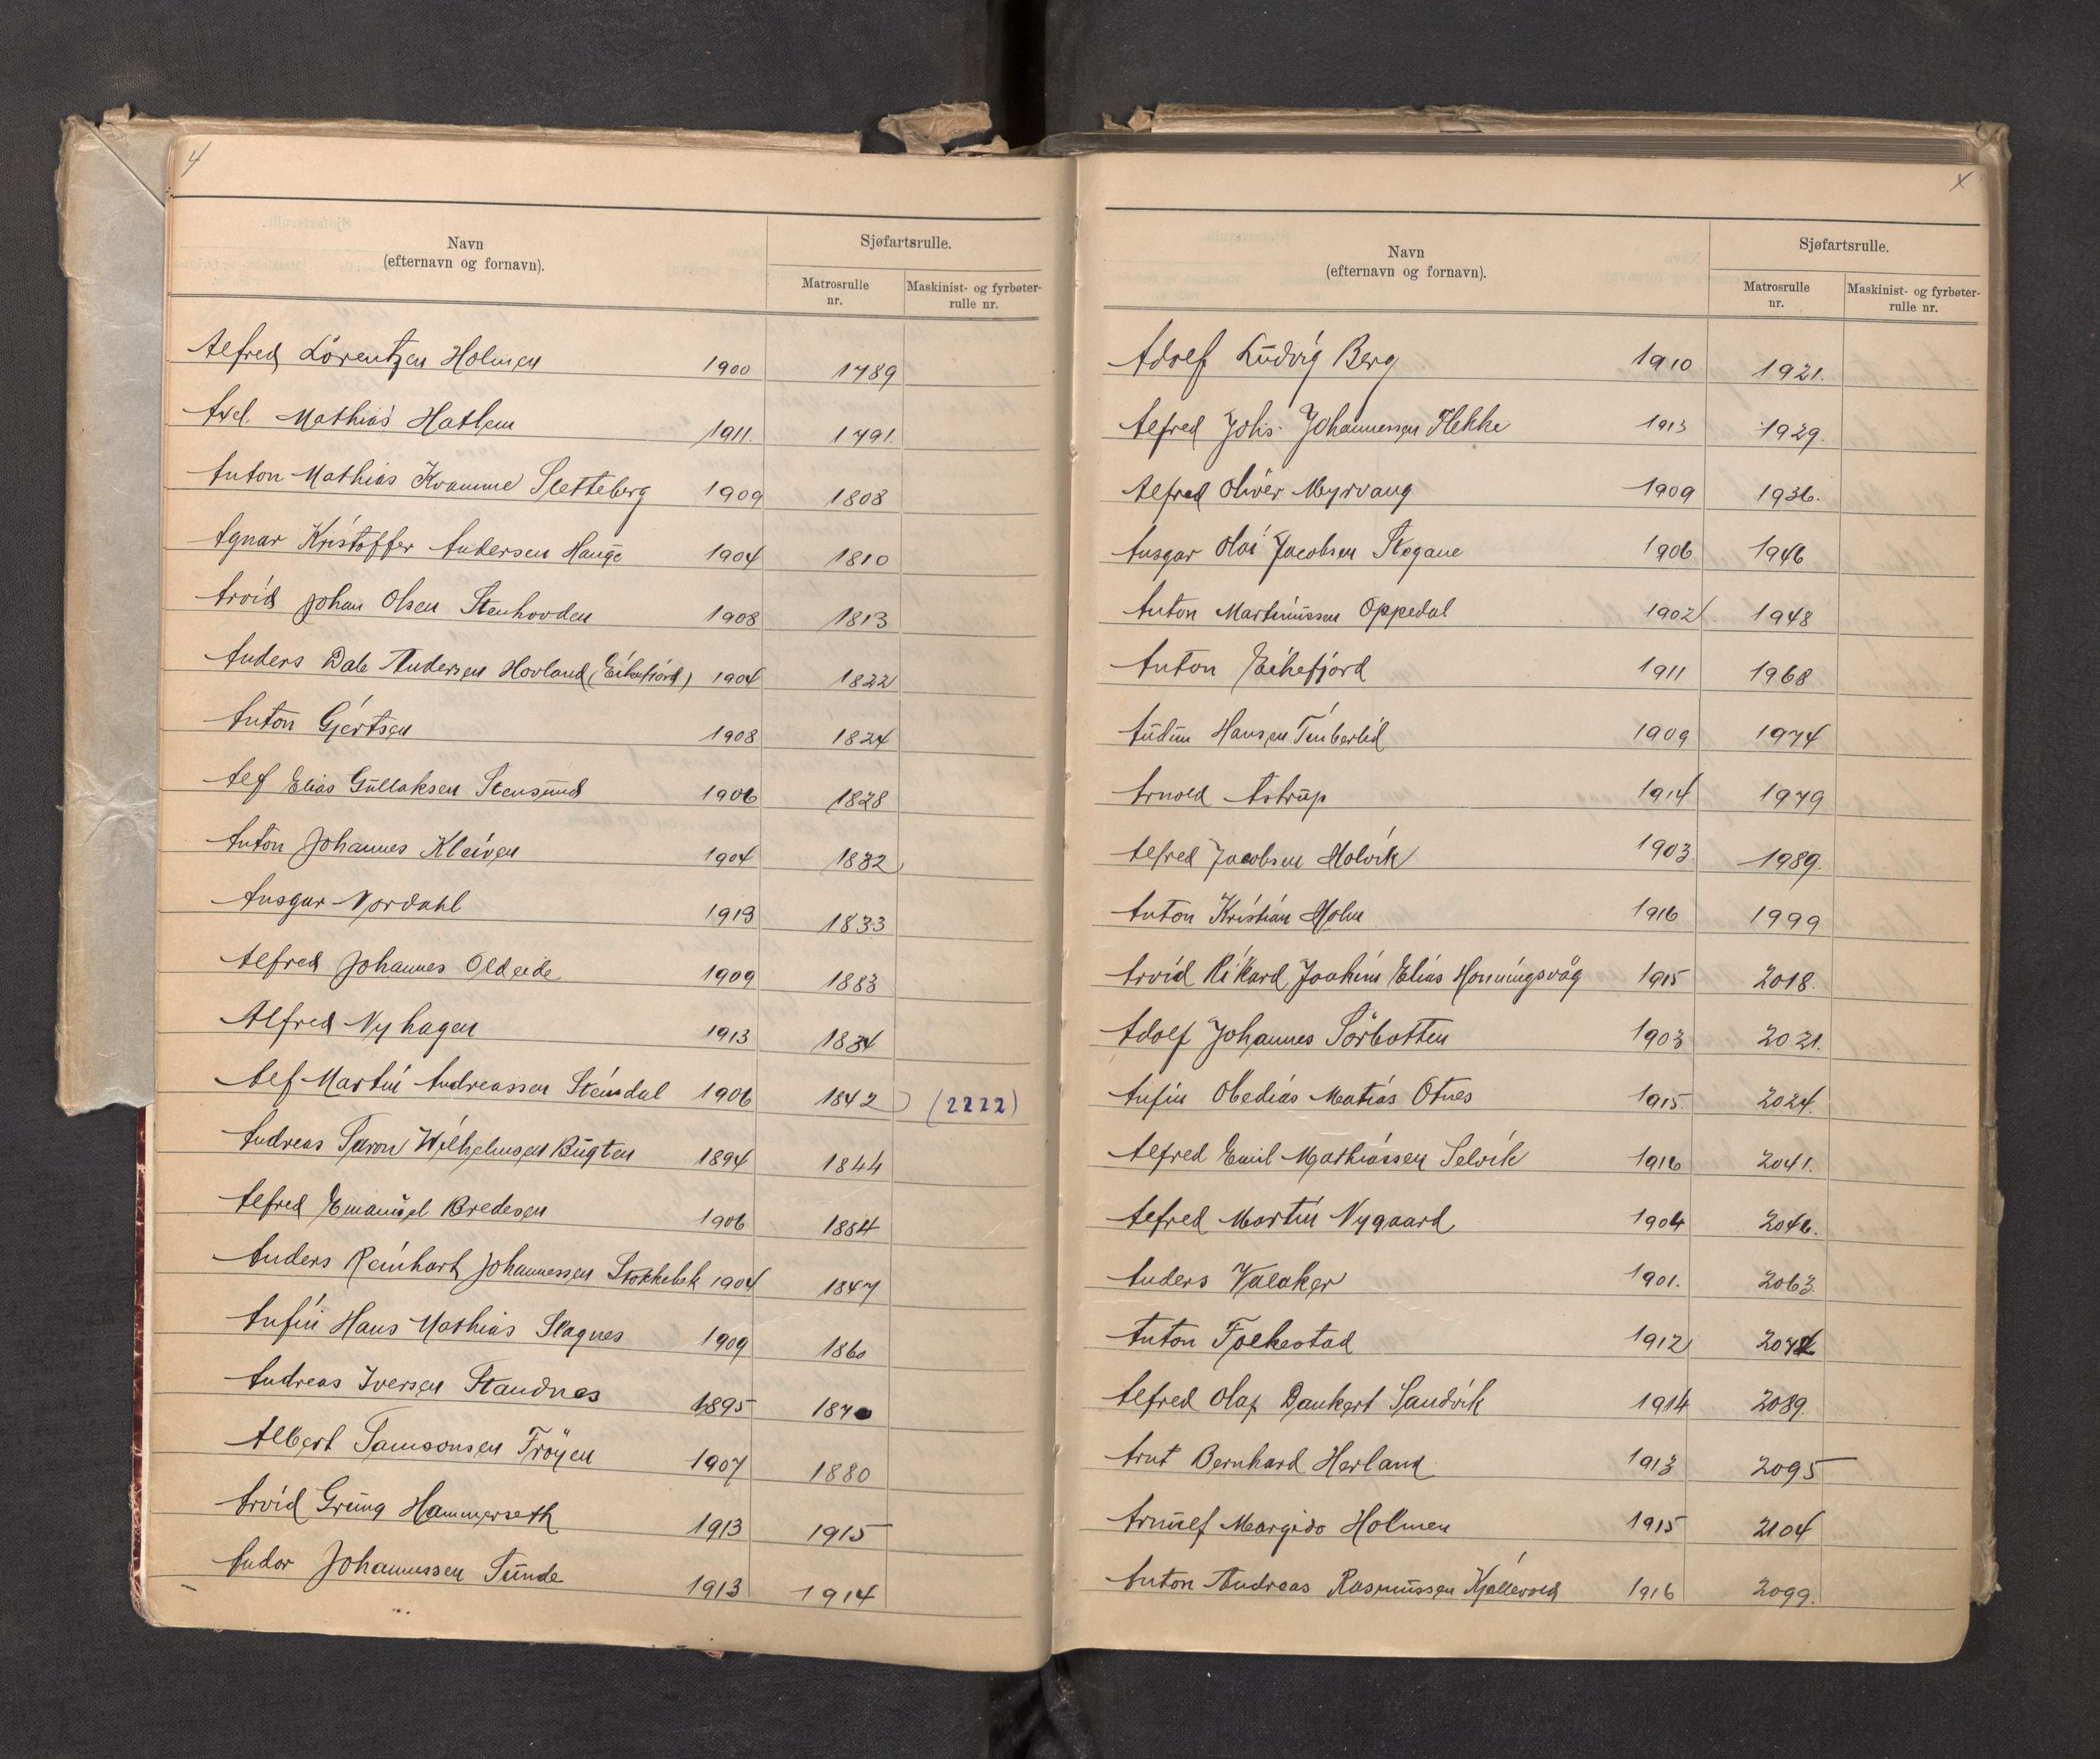 4
Navn
(efternavn og fornavn).
Sjøfartsrulle.
Matrosrulle
nr.
Maskinist- og fyrbøter-
rulle nr.
Alfred Lorentzen Holmen 1900 1789
Axel Mathias Hatlem 1911. 1791.
Anton Mathias Kvamme Sletteberg 1909 1808
Agnar Kristoffer Andersen Hauge 1904 1810
Arvid Johan Olsen Stenhovden 1908 1813
Anders Dale Andersen Hovland (Eikefjord) 1904 1822
Anton Gjertsen 1908 1824
Alf Elias Gullaksen Stensund 1906 1828
Anton Johannes Kleiven 1904 1832
Ansgar Nordahl 1913 1833
Alfred Johannes Oldeide 1909 1883
Alfred Nyhagen 1913 1834
Alf Martin Andreassen Steindal 1906 1842 (2222)
Andreas Wilhelmsen Bugten 1894 1844
Alfred Emanuel Bredesen 1906 1854
Anders Reinhart Johannessen Stokkebek 1904 1847
Anfin Hans Mathias Slagnes 1909 1860
Andreas Iversen Standnes 1895 1870
Albert Samsonsen Fröyen 1907 1880
Arvid Grung Hammerseth 1913 1915
Andor Johannessen Sunde 1913 1914
Navn
(efternavn og fornavn).
Sjøfartsrulle.
Matrosrulle
nr.
Maskinist- og fyrbøter-
rulle nr.
Adolf Ludvig Berg 1910 1921.
Alfred Johs. Johannessen Flekke 1913 1929.
Alfred Oliver Myrvang 1909 1936.
Ansgar Olai Jacobsen Skogane 1906 1946
Anton Martinussen Oppedal 1902 1948
Anton Eikefjord 1911 1968
Audun Hansen Timberlid 1909 1974
Arnold Astrup 1914 1979
Alfred Jacobsen Holvik 1903 1989.
Anton Kristian Holm 1916 1999
Arvid Rikard Joakim Elias Honningsvåg 1915 2018.
Adolf Johannes Sörbotten 1903 2021.
Anfin Obedias Matias Otnes 1915. 2024.
Alfred Emil Mathiassen Selvik 1916 2041.
Alfred Martin Nygaard 1904 2046.
Anders Valaker 1901. 2063.
Anton Folkestad 1912
Alfred Olaf Dankert Sandvik 1914 2089.
Arnt Bernhard Herland 1913 2095
Arnulf Margido Holmen 1915 2104
Anton Andreas Rasmussen Kjellevold 1916 2099.